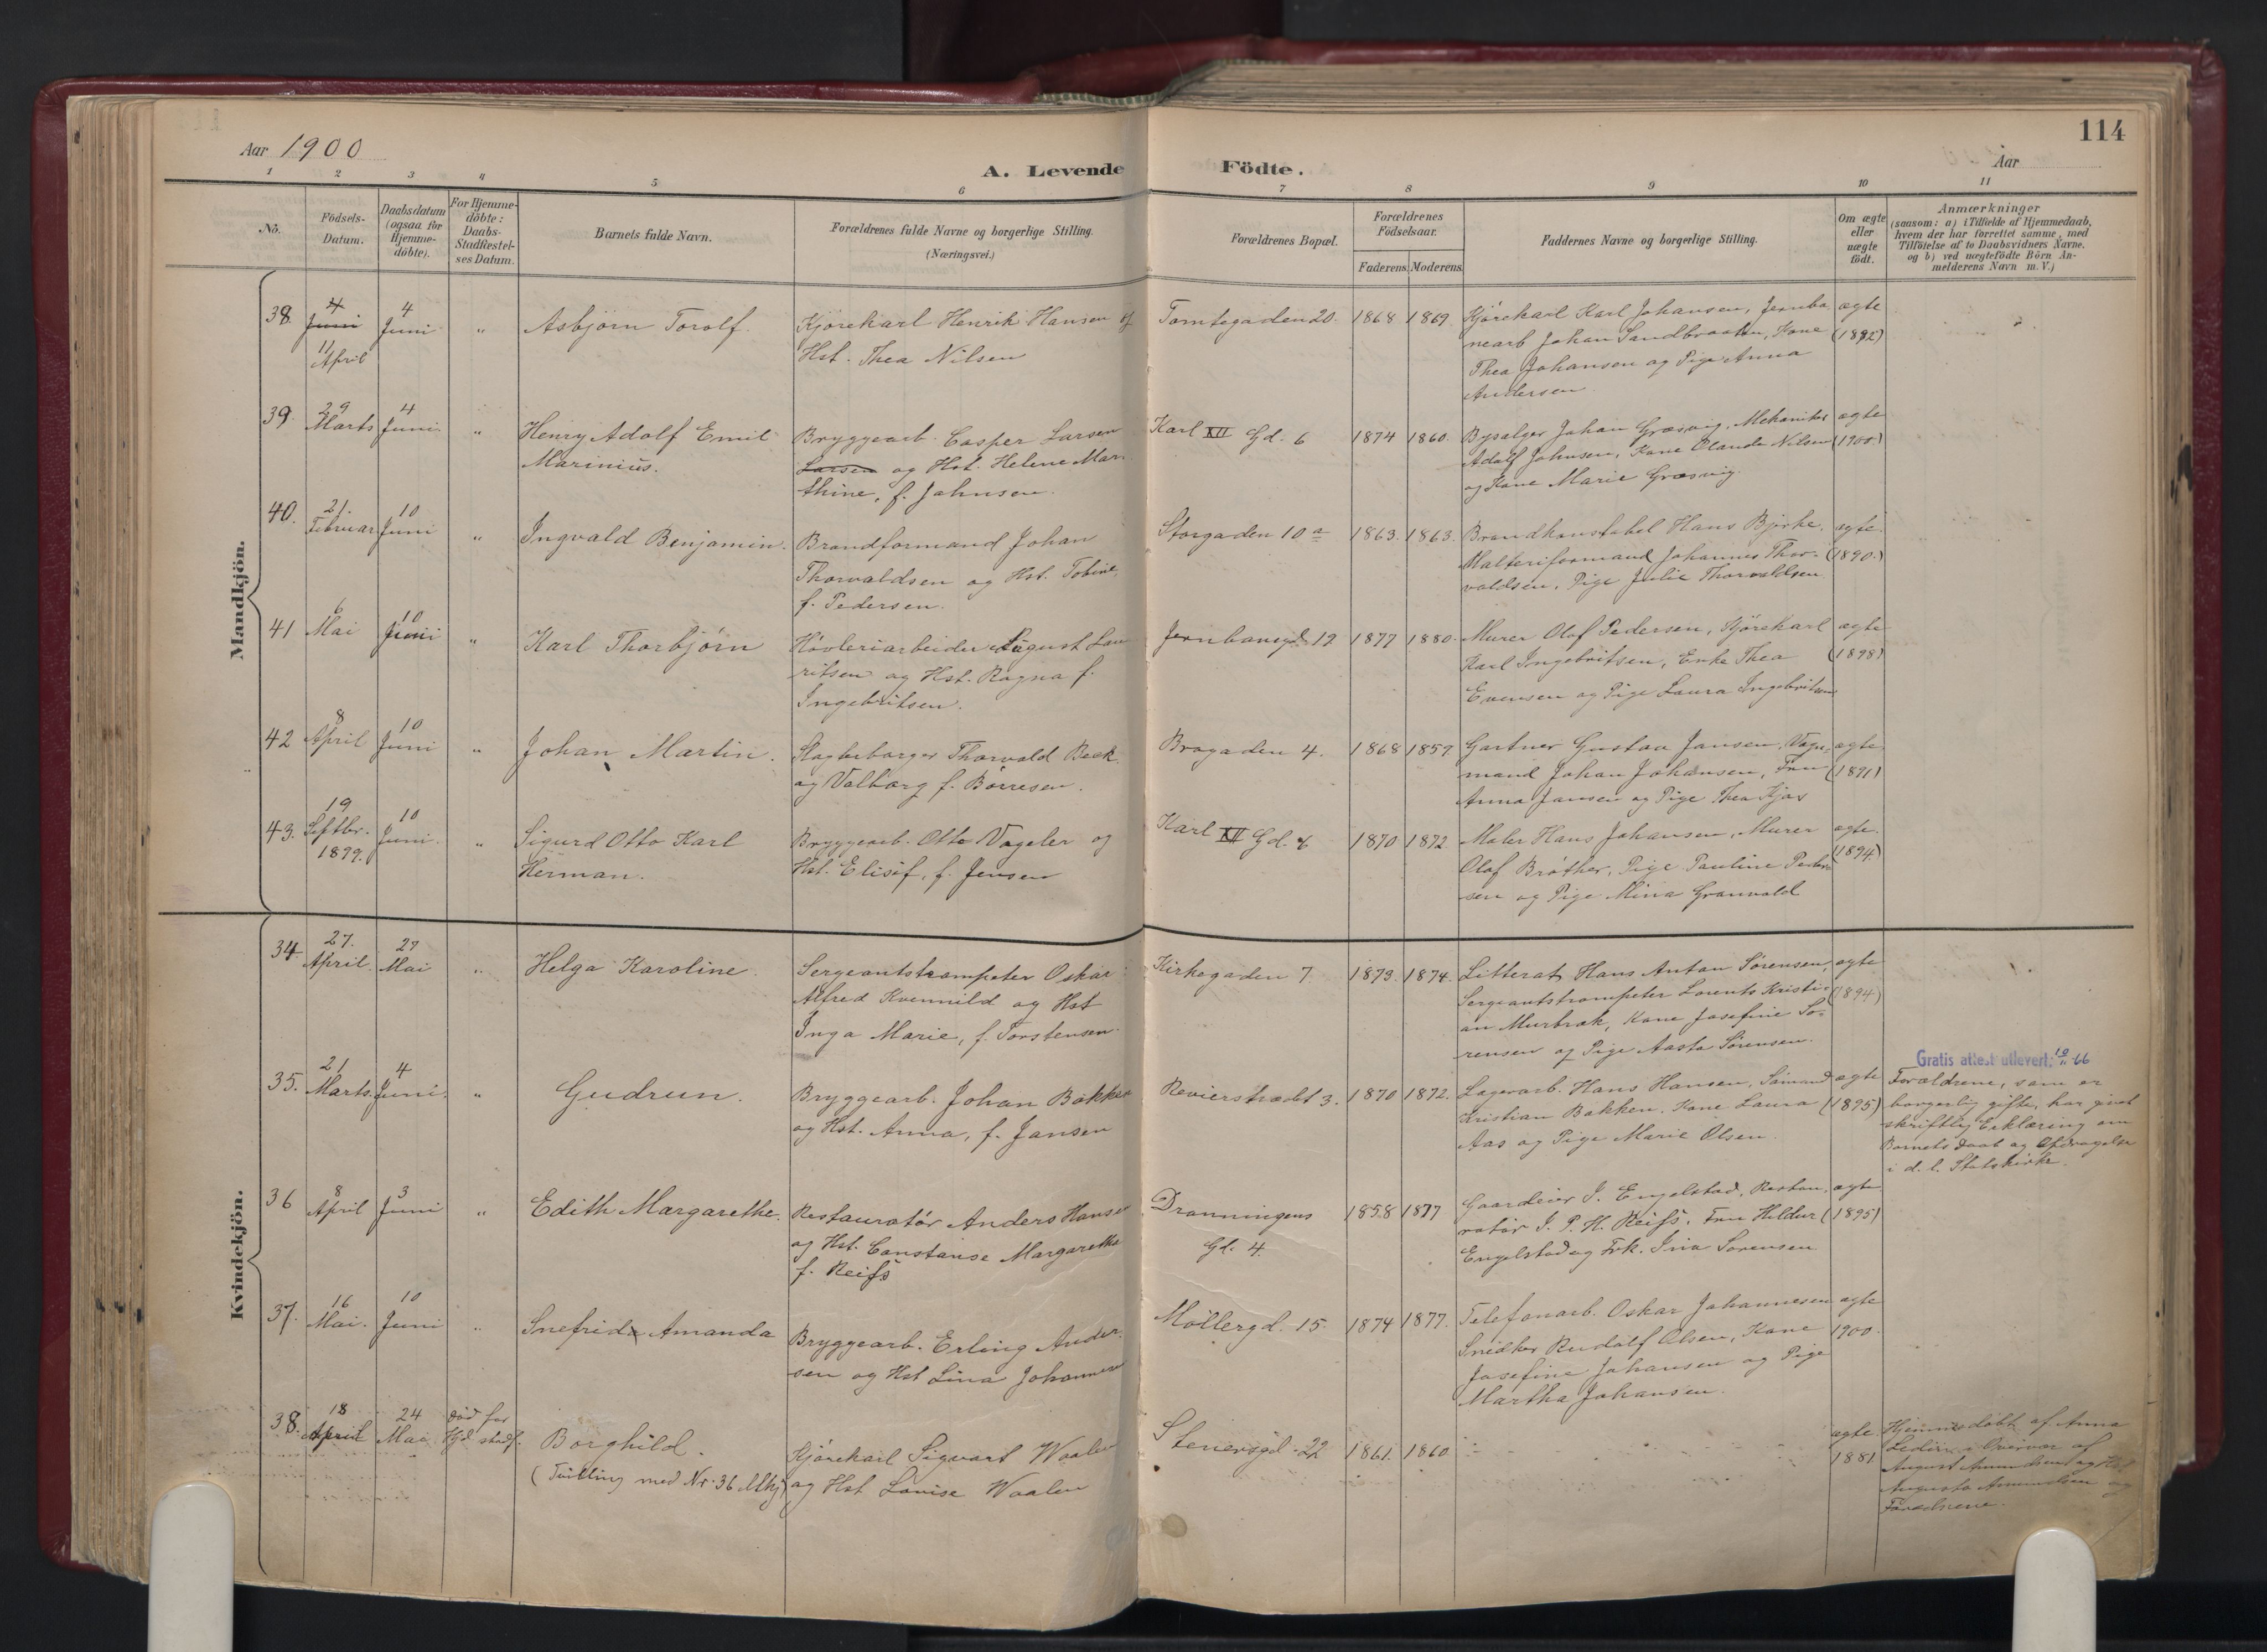 114
Aar 1900
Aar
A. Levende Födte.
1 2 3 4 5 6 7 8 9 10 11
No.
Födsels-
Datum.
Daabsdatum
(ogsaa for
Hjemme-
döbte).
For Hjemme-
döbte:
Daabs-
Stadfæstel-
ses Datum.
Barnets fulde Navn.
Forældrenes fulde Navne og borgerlige Stilling.
(Næringsvei.)
Forældrenes Bopæl.
Forældrenes
Födselsaar.
Faderens. Moderens.
Faddernes Navne og borgerlige Stilling.
Om ægte
eller
uægte
födt.
Anmærkninger
(saasom: a) i Tilfælde af Hjemmedaab,
hvem der har forrettet samme, med
Tilföielse af to Daabsvidners Navne.
og b) ved uægtefödte Börn An-
melderens Navn m. V.)
Mandkjön.
38.
4
Juni
11
April
4
Juni
"
Asbjørn Torolf.
Kjørekarl Henrik Hansen og
Hst. Thea Nilsen
Tomtegaden 20.
1868 1869
Kjørekarl Karl Johansen, Jernba
nearb Johan Sandbraaten, Kone
Thea Johansen og Pige Anna
Andersen
ægte
(1892)
39.
29
Marts
4
Juni.
"
Henry Adolf Emil
Marinius.
Bryggearb. Casper Larsen
Larsen og Hst. Helene Mar
thine, f. Johnsen.
Karl XII Gd. 6
1874 1860.
Bysælger Johan Græsvig, Mekaniker
Adolf Johnsen, Kone Olanda Nilsen
og Kone Marie Græsvig
ægte
(1900.)
40.
21.
Februar
10
Juni
"
Ingvald Benjamin.
Brandformand Johan
Thorvaldsen og Hst. Tobine
f. Pedersen.
Storgaden 10 a
1863. 1863.
Brandkonstabel Hans Bjerke,
Malteriformand Johannes Thor-
valdsen, Pige Julie Thorvaldsen
ægte.
(1890.)
41
6
Mai
10
Juni
"
Karl Thorbjørn
Høvleriarbeider August Lau
ritsen og Hst. Ragna f.
Ingebritsen.
Jernbanegd. 12
1877 1880.
Murer Olaf Pedersen, Kjørekarl
Karl Ingebritsen, Enke Thea
Evensen og Pige Laura Ingebritsen
ægte
(1898)
42
8
April
10
Juni
"
Johan Martin.
Slagteborger Thorvald Beck
og Valborg f. Børresen.
Brogaden 4.
1868 1857
Gartner Gustav Jansen, Vogn-
mand Johan Johansen, Fru
Anna Jansen og Pige Thea Kjær
ægte
(1891)
43.
19
Septbr.
1899.
10
Juni.
"
Sigurd Otto Karl
Herman.
Bryggearb. Otto Vogeler og
Hst. Elisif, f. Jensen
Karl XII Gd. 6
1870 1872
Maler Hans Johansen, Murer
Olaf Brøther, Pige Pauline Peder
sen og Pige Mina Granvold
ægte.
(1894)
Kvindekjön.
34.
27.
April.
27
Mai
"
Helga Karoline.
Sergeantstrompeter Oskar
Alfred Kvernild og Hst
Inga Marie, f. Torstensen.
Kirkegaden 7.
1873. 1874.
Litterat Hans Anton Sørensen,
Sergeantstrompeter Lorents Kristi-
an Murbræk, Kone Josefine Sø-
rensen og Pige Aasta Sørensen.
ægte
(1894)
35.
21
Marts
4
Juni.
"
Gudrun.
Bryggearb. Johan Bakken
og Hst. Anna, f. Jansen
Revierstrædet 3.
1870 1872.
Lagerarb. Hans Hansen, Sømand
Kristian Bakken, Kone Laura
Aas og Pige Marie Olsen.
ægte
(1895)
Gratis attest utlevert. 10/11-66
Forældrene, som er
borgerlig gifte, har givet
skriftlig Erklæring om
Barnets Daab og Opdragelse
i d. l. Statskirke.
36
8
April
3
Juni
"
Edith Margarethe.
Restauratør Anders Hansen
og Hst. Constanse Margarethe
f. Reifs
Dronningens
Gd. 4.
1858 1877
Gaardeier I. Engelstad, Restau-
ratør I. P. H. Reifs, Fru Hildur
Engelstad og Frk. Ina Sørensen
ægte
(1895)
37.
16
Mai.
10
Juni
"
Snefrid Amanda
Bryggearb. Erling Ander-
sen og Hst Lina Johannesen
Møllergd. 15.
1874 1877.
Telefonarb. Oskar Johannesen
Snedker Rudolf Olsen, Kone
Josefine Johansen og Pige
Martha Johansen.
ægte
1900.
38.
18
April
24
Mai
død før
Hjd. stadf.
Borghild.
(Tvilling med Nr. 36 Mkj)
Kjørekarl Sigvart Waaler
og Hst Lovise Waaler
Stenersgd. 22
1861. 1860
ægte
1881.
Hjemmedøbt af Anna
i Overvær af
August Amundsen og Hst
Augusta Amundsen og
Forældrene.